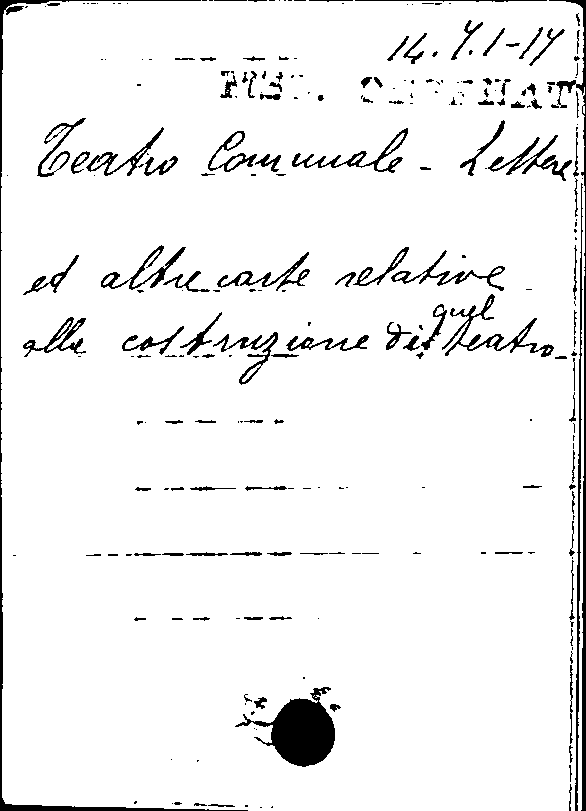 14.7.1-17
Teatro Comunale - Lettere
ed altre carte relative
alla costruzione di quel teatro